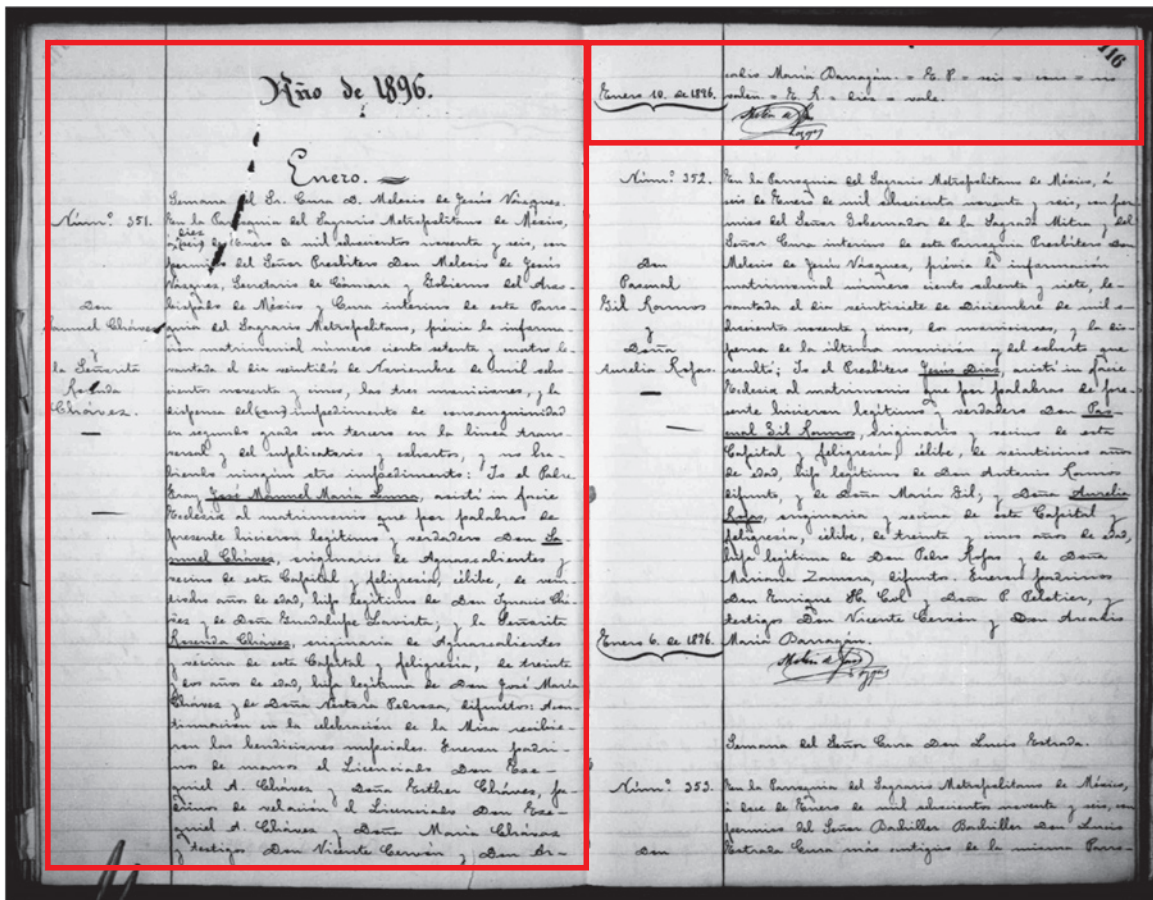 Año de 1896.
Enero.
Semana del Sr. Cura D. Melesio de Jesús Vázquez.
Núm.º 351.
En la Parroquia del Sagrario Metropolitano de México,
diez
a (seis) de Enero de mil ochocientos noventa y seis, con
permiso del Señor Presbítero Don Melesio de Jesús
Vázquez, Secretario de Cámara y Gobierno del Arzo-
bispado de México y Cura interino de esta Parro-
quia del Sagrario Metropolitano, prévia la informa-
ción matrimonial número ciento setenta y cuatro le-
vantada el dia veintidós de Noviembre de mil ocho-
cientos noventa y cinco, las tres moniciones, y la
dispensa del (con) impedimento de consanguinidad
en segundo grado con tercero en la línea trans-
versal y del suplicatorio y exhortos, y no ha-
biendo ningún otro impedimento: Yo el Padre
Fray José Manuel María Luna, asistí in facie
Eclesiæ al matrimonio que por palabras de
presente hicieron legítimo y verdadero Don Sa-
muel Chávez, originario de Aguascalientes y
vecino de esta Capital y feligresía, célibe, de vein-
tiocho años de edad, hijo legítimo de Don Ignacio Chá-
vez y de Doña Guadalupe Lavista; y la Señorita
Rosunda Chávez, originaria de Aguascalientes
y vecina de esta Capital y feligresía, de treinta
y dos años de edad, hija legítima de Don José María
Chávez y de Doña Néstora Pedroza, difuntos: Acon-
tinuación en la celebración de la Misa recibie-
ron las bendiciones nupciales. Fueron padri-
nos de manos el Licenciado Don Eze-
quiel A. Chávez y Doña Esther Chávez, pa-
drinos de velación el Licenciado Don Eze-
quiel A. Chávez y Doña María Chávez
y testigos Don Vicente Cervón y Don Ar-
Don
Samuel Chávez
y
la Señorita
Chávez.
116
cadio María Barragán. = E. P = seis = con = no
valen = E. R. = diez = vale.
Enero 10. de 1896.
Núm.º 352.
En la Parroquia del Sagrario Metropolitano de México, á
seis de Enero de mil ochocientos noventa y seis, con per-
miso del Señor Gobernador de la Sagrada Mitra y del
Señor Cura interino de esta Parroquia Presbítero Don
Melesio de Jesús Vázquez, prévia la información
matrimonial número ciento ochenta y siete, le-
vantada el dia veintisiete de Diciembre de mil o-
chocientos noventa y cinco, dos moniciones, y la dis-
pensa de la última monición y del exhorto que
resultó; Yo el Presbítero Jesús Díaz, asistí in facie
Eclesiæ al matrimonio que por palabras de pre-
sente hicieron legítimo y verdadero Don Pas-
cual Gil Romos, originario y vecino de esta
Capital y feligresía, célibe, de veinticinco años
de edad, hijo legítimo de Don Antonio Romos
difunto, y de Doña María Gil; y Doña Aurelia
Rojas, originaria y vecina de esta Capital y
feligresía, célibe, de treinta y cinco años de edad,
hija legítima de Don Pedro Rojas y de Doña
Mariana Zamora, difuntos. Fueron padrinos
Don Enrique H. Col y Doña P Peletier, y
testigos Don Vicente Cervón y Don Arcadio
María Barragán.
Don
Pascual
Gil Romos
y
Doña
Aurelia Rojas.
Enero 6. de 1896.
Semana del Señor Cura Don Lucio Estrada.
Núm.º 353.
En la Parroquia del Sagrario Metropolitano de México,
á doce de Enero de mil ochocientos noventa y seis, con
permiso del Señor Bachiller Bachiller Don Lucio
Estrada Cura más antiguo de la misma Parro-
Don